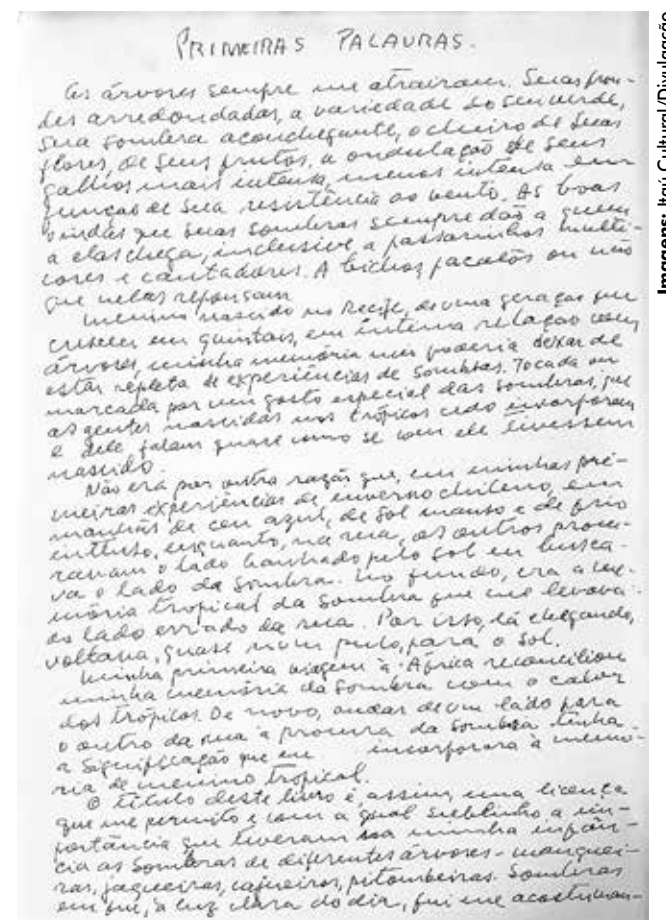 PRIMEIRAS PALAVRAS.
As árvores sempre me atraíram. Suas fron-
des arredondadas, a variedade do seu verde,
sua sombra aconchegante, o cheiro de suas
flores, de seus frutos, a ondulação de seus
galhos mais intensa, menos intensa em
função de sua resistência ao vento. As boas
vindas que suas sombras sempre dão a quem
a elas chega, inclusive a passarinhos multi-
cores e cantadores. A bichos pacatos ou não
que nelas repousam
Menino nascido no Recife, de uma geração que
cresceu em quintais, em íntima relação com
árvores, minha memória não poderia deixar de
estar repleta de experiências de sombras. Tocada ou
marcada por um gosto especial das sombras, que
as gentes nascidas nos trópicos cedo incorporam
e dele falam quase como se com ele tivessem
nascido.
Não era por outra razão que, em minhas pri-
meiras experiências de inverno chileno, em
manhãs de céu azul, de sol manso e de frio
intenso, enquanto, na rua, os outros procu-
ravam o lado banhado pelo sol eu busca-
va o lado da sombra. No fundo, era a me-
mória tropical da sombra que me levava
ao lado errado da rua. Por isso, lá chegando,
voltava, quase num pulo, para o sol.
Minha primeira viagem à África reconciliou
minha memória da sombra com o calor
dos trópicos. De novo, andar de um lado para
o outro da rua à procura da sombra tinha
a significação que eu incorporara à memó-
ria de menino tropical.
O título deste livro é, assim, uma licença
que me permito e com a qual sublinho a im-
portância que tiveram na minha infân-
cia as sombras de diferentes árvores - manguei-
ras, jaqueiras, cajueiros, pitombeiras. Sombras
em que, à luz clara do dia, fui me acostuman-
Imagens: Itaú Cultural/Divulgação